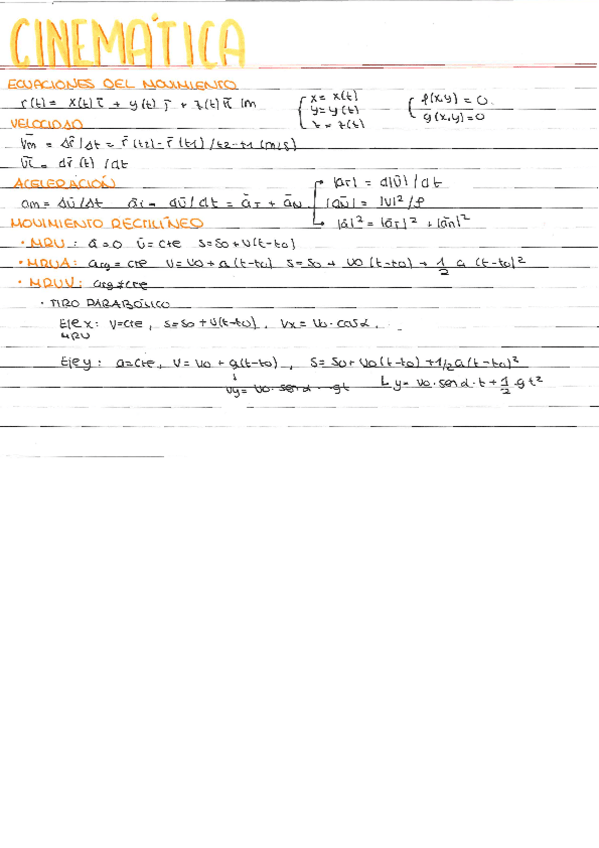 CINEMÁTICA
ECUACIONES DEL MOVIMIENTO
r(t) = x(t) i + y(t) j + z(t) k |m { x = x(t) { f(x,y) = 0
y = y(t) g(x,y) = 0
z = z(t)
VELOCIDAD
Vm = Δr̄/Δt = r̄(t2) - r̄(t1) / t2-t1 (m/s)
v̄i = dr̄(t) / dt
ACELERACIÓN |aT| = d|v̄| / dt
am = Δv̄/Δt āi = dv̄/dt = āT + āN |āN| = |v|²/ρ
|ā|² = |āT|² + |ān|²
MOVIMIENTO RECTILÍNEO
· MRU : ā = 0 v̄ = cte s = so + v(t-to)
· MRUA: arg = cte v = vo + a (t-to) s = so + vo (t-to) + 1/2 a (t-to)²
· MRUV: arg ≠ cte
· TIRO PARABÓLICO
Eje x: v=cte, s=so + v(t-to), Vx = Vo · cosα.
MRU
Eje y: a=cte, v = vo + g(t-to), s = so + vo(t-to) + 1/2 a(t-to)²
vy = vo · senα · -gt y = vo · senα · t + 1/2 · g t²